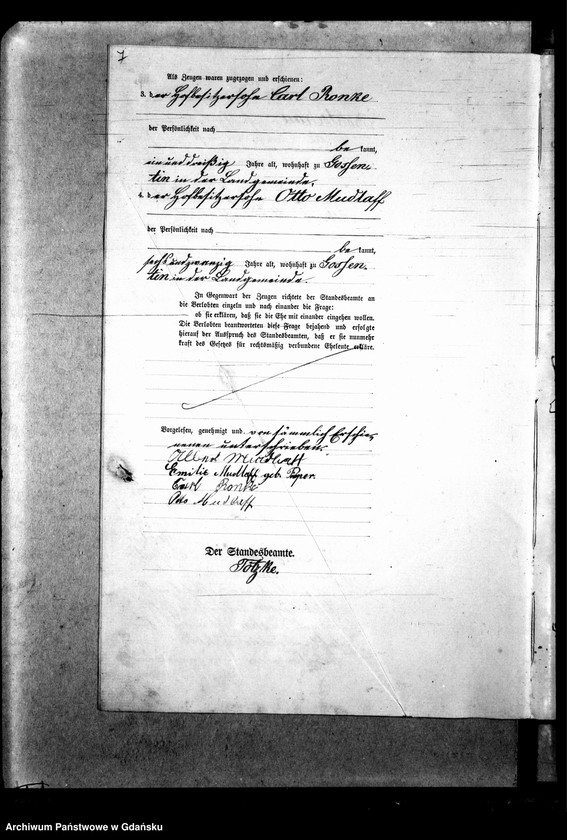 7
Als Zeugen waren zugezogen und erschienen:
3. der Hofbesitzersohn Carl Ronke
der Persönlichkeit nach
be kannt,
einunddreißig Jahre alt, wohnhaft zu Gossen-
tin in der Landgemeinde.
4. der Hofbesitzersohn Otto Mudlaff
der Persönlichkeit nach
be kannt,
sechsundzwanzig Jahre alt, wohnhaft zu Gossen-
tin in der Landgemeinde.
In Gegenwart der Zeugen richtete der Standesbeamte an
die Verlobten einzeln und nach einander die Frage:
ob sie erklären, daß sie die Ehe mit einander eingehen wollen.
Die Verlobten beantworteten diese Frage bejahend und erfolgte
hierauf der Ausspruch des Standesbeamten, daß er sie nunmehr
kraft des Gesetzes für rechtsmäßig verbundene Eheleute erkläre.
Vorgelesen, genehmigt und von sämmtlich Erschie-
nenen unterschrieben.
Albert Mudlaff
Emilie Mudlaff geb. Pieper
Carl Ronke
Otto Mudlaff
Der Standesbeamte.
Totzke.
Archiwum Państwowe w Gdańsku